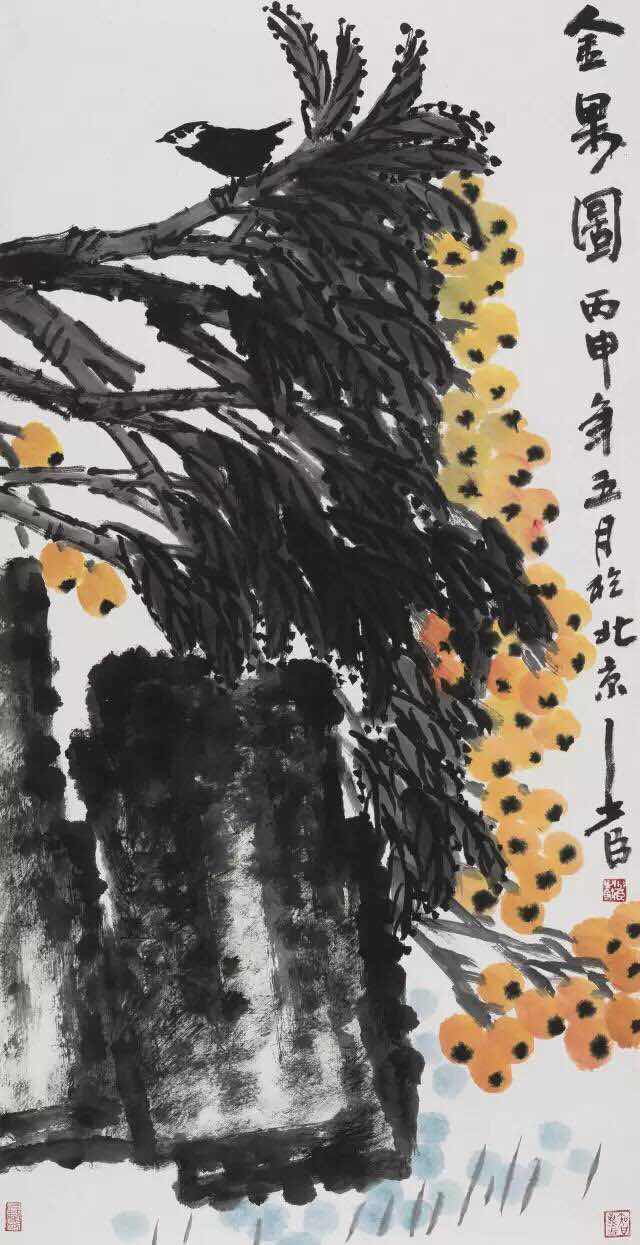 金果圖丙申年五月於北京